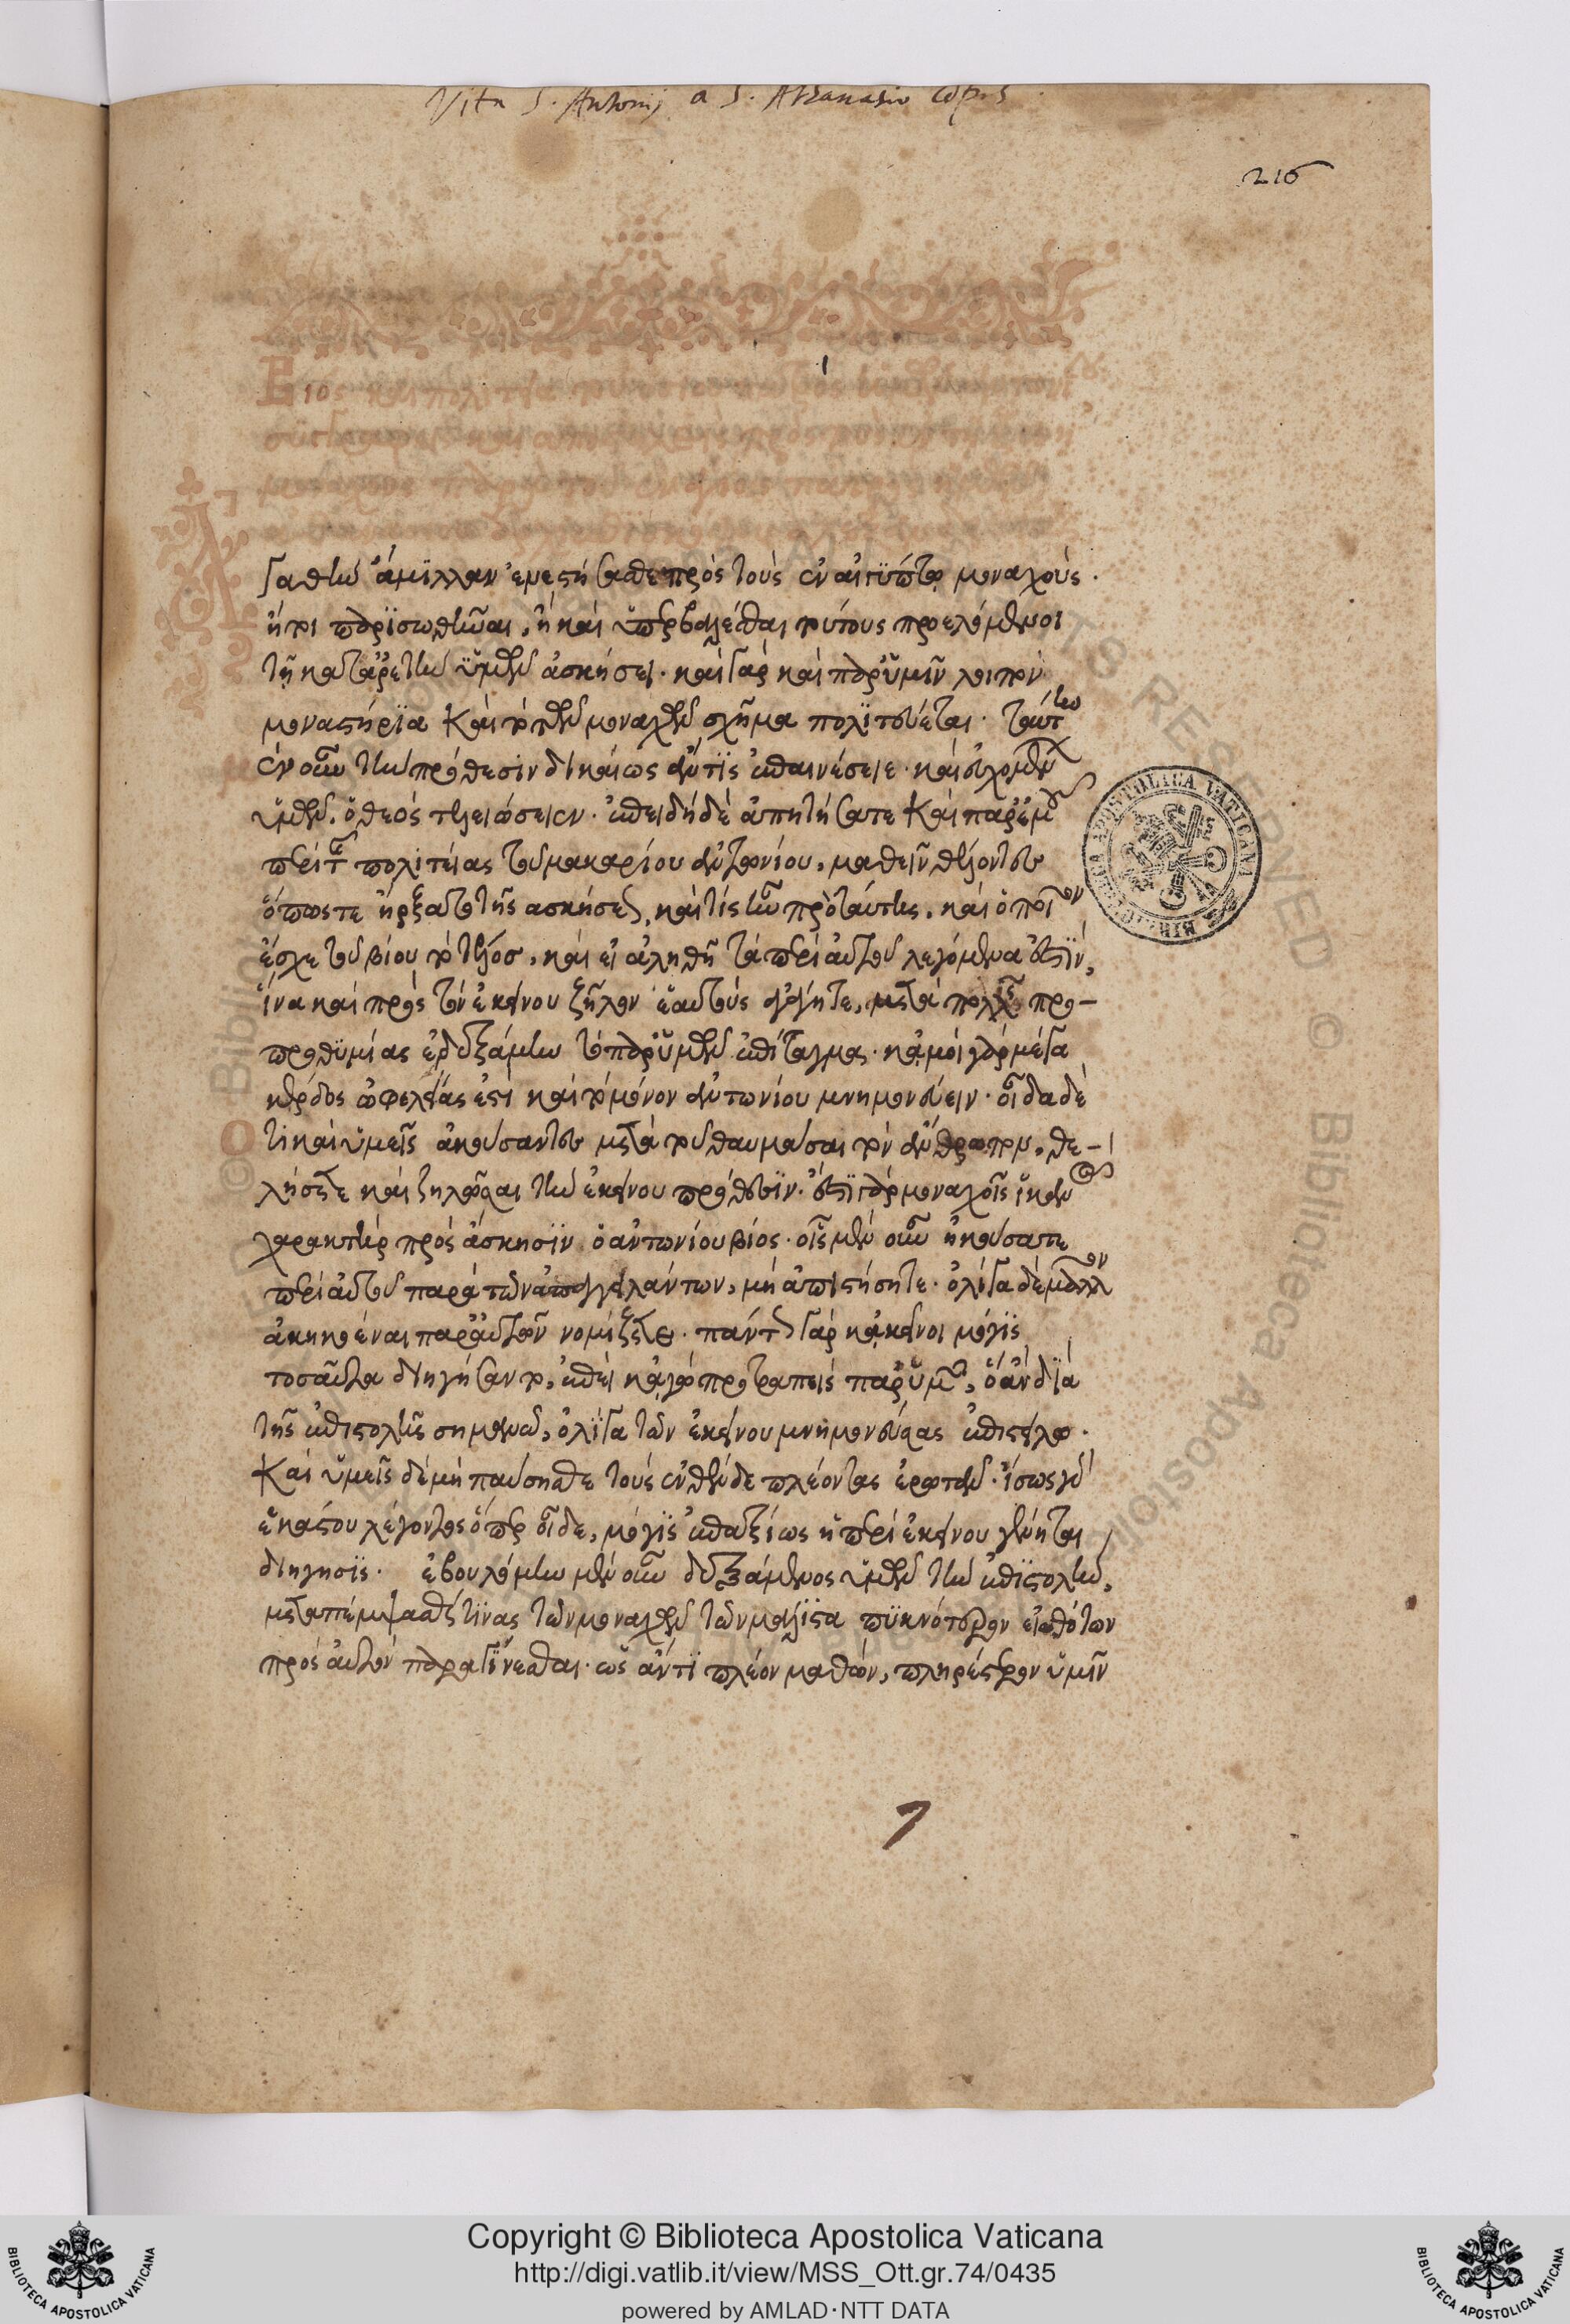 Vita S. Antonij a S. Athanasio
216
Βίος καὶ πολιτεία
γαθὴν ἅμιλλαν ἐνεστήσασθε πρὸς τοὺς ἐν αἰγύπτῳ μοναχούς.
ἤτοι παρισωθῆναι, ἢ καὶ ὑπερβαλέσθαι τούτους προελόμενοι
τῇ κατ' ἀρετὴν ὑμῶν ἀσκήσει. καὶ γὰρ καὶ παρ' ὑμῖν λοιπὸν
μοναστήρια καὶ τὸ τῶν μοναχῶν σχῆμα πολιτεύεται. ταύτην
μὲν οὖν τὴν πρόθεσιν δικαίως ἄν τις ἐπαινέσειε. καὶ εὐχομένων
ὑμῶν, ὁ θεὸς τελειώσειεν. ἐπειδὴ δὲ ἀπητήσατε καὶ παρ' ἐμοῦ
περὶ τῆς πολιτείας τοῦ μακαρίου ἀντωνίου, μαθεῖν θέλοντες
ὅπως τε ἤρξατο τῆς ασκήσεως, καὶ τίς ἦν πρὸ ταύτης, καὶ ὁποῖον
ἔσχε τοῦ βίου τὸ τέλος, καὶ εἰ ἀληθῆ τὰ περὶ αὐτοῦ λεγόμενα ἐστὶν,
ἵνα καὶ πρὸς τὸν ἐκείνου ζῆλον ἑαυτοὺς ἀγάγητε, μετὰ πολλῆς προ-
προθυμίας ἐδεξάμην τὸ παρ' ὑμῶν ἐπίταγμα. κἀμοὶ γὰρ μέγα
κέρδος ὠφελείας ἐστὶ καὶ τὸ μόνον ἀντωνίου μνημονεύειν. οἶδα δὲ
ὅτι καὶ ὑμεῖς ἀκούσαντες μετὰ τοῦ θαυμάσαι τὸν ἄνθρωπον, θε-
λήσετε καὶ ζηλῶσαι τὴν ἐκείνου πρόθεσιν. ἔστι γὰρ μοναχοῖς ἱκανὸς
χαρακτὴρ πρὸς ἄσκησιν ὁ ἀντωνίου βίος. οἷς μὲν οὖν ἠκούσατε
περὶ αὐτοῦ παρὰ τῶν ἀπαγγειλάντων, μὴ ἀπιστήσητε. ὀλίγα δὲ μᾶλλον
ἀκηκοέναι παρ' αὐτῶν νομίζετε. πάντως γὰρ κἀκεῖνοι μόγις
τοσαῦτα διηγήσαντο, ἐπεὶ κἀγὼ προτραπεὶς παρ' ὑμῶν, ὅσ' ἂν διὰ
τῆς ἐπιστολῆς σημανῶ, ὀλίγα τῶν ἐκείνου μνημονεύσας ἐπιστέλλω.
καὶ ὑμεῖς δὲ μὴ παύσησθε τοὺς ἐνθένδε πλέοντας ἐρωτᾶν. ἴσως γὰρ
ἑκάστου λέγοντος ὅπερ οἶδε, μόγις ἐπαξίως ἡ περὶ ἐκείνου γένηται
διήγησις. ἐβουλόμην μὲν οὖν δεξάμενος ὑμῶν τὴν ἐπιστολὴν,
μεταπέμψασθαί τινας τῶν μοναχῶν τῶν μάλιστα πυκνότερον εἰωθότων
πρὸς αὐτὸν παραγίνεσθαι. ὡς ἄν τι πλέον μαθὼν, πληρέστερον ὑμῖν
BIBLIOTECA APOSTOLICA VATICANA
Copyright © Biblioteca Apostolica Vaticana
http://digi.vatlib.it/view/MSS_Ott.gr.74/0435
powered by AMLAD·NTT DATA
BIBLIOTECA APOSTOLICA VATICANA
BIBLIOTECA APOSTOLICA VATICANA